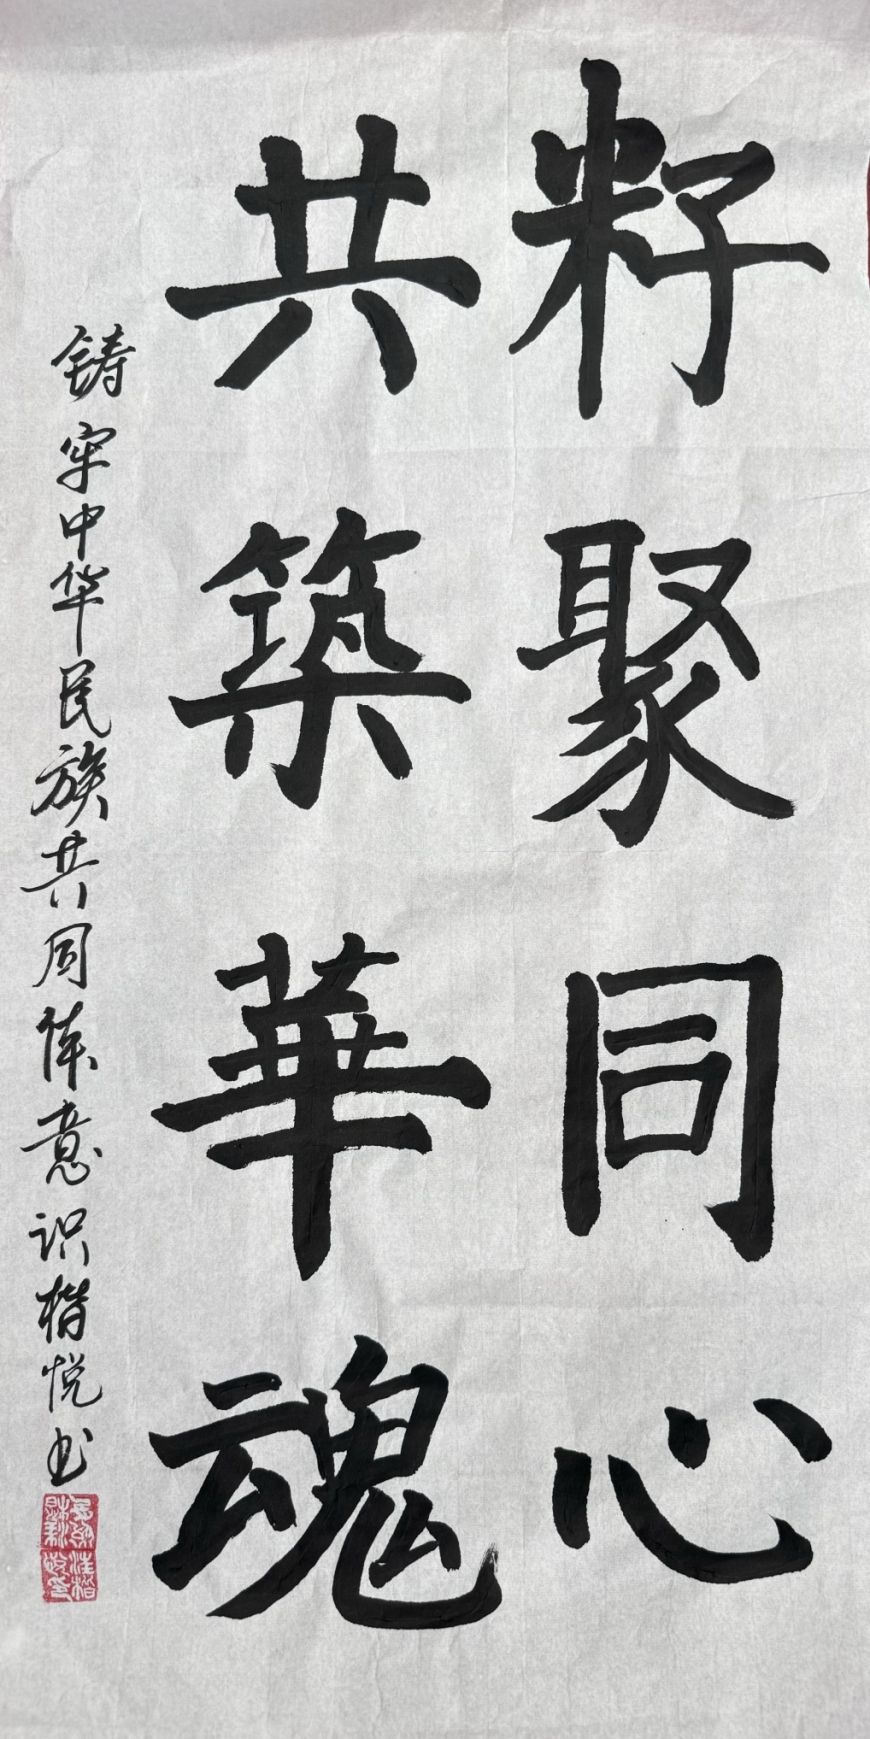 籽聚同心
共築華魂
铸牢中华民族共同体意识楷悦书